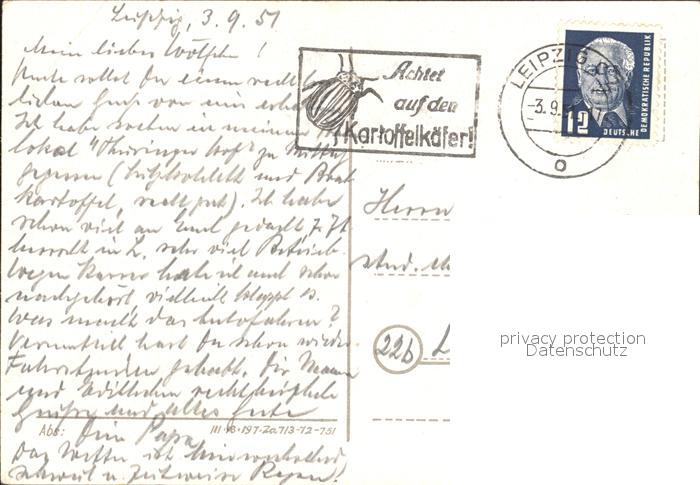 Leipzig, 3.9.51
Mein liebes Wölfchen!
Heute sollst Du einen recht
lichen Gruß von mir
Ich habe soeben in meinem
lokal "Thüringer Hof" zu Mittag
gegessen ( und Brat
kartoffel, sehr gut). Ich habe
schon viel an Euch gedacht. Z. Zt.
herrscht in L. sehr viel Betrieb.
Wegen habe ich auch schon
nachgehört, vielleicht klappt es.
Was macht das Autofahren?
Vermutlich hast Du schon wieder
Fahrstunden gehabt. Dir, Mama
und recht herzliche
Grüße und alles Gute
Abs: Dein Papa
III-18-197 Za 713-12-751
Das Wetter ist
schwül u. zeitweise Regen.
Achtet
auf den
Kartoffelkäfer!
LEIPZIG
-3.9.
12
DEUTSCHE
DEMOKRATISCHE REPUBLIK
Herrn
stud.
22b L
privacy protection
Datenschutz